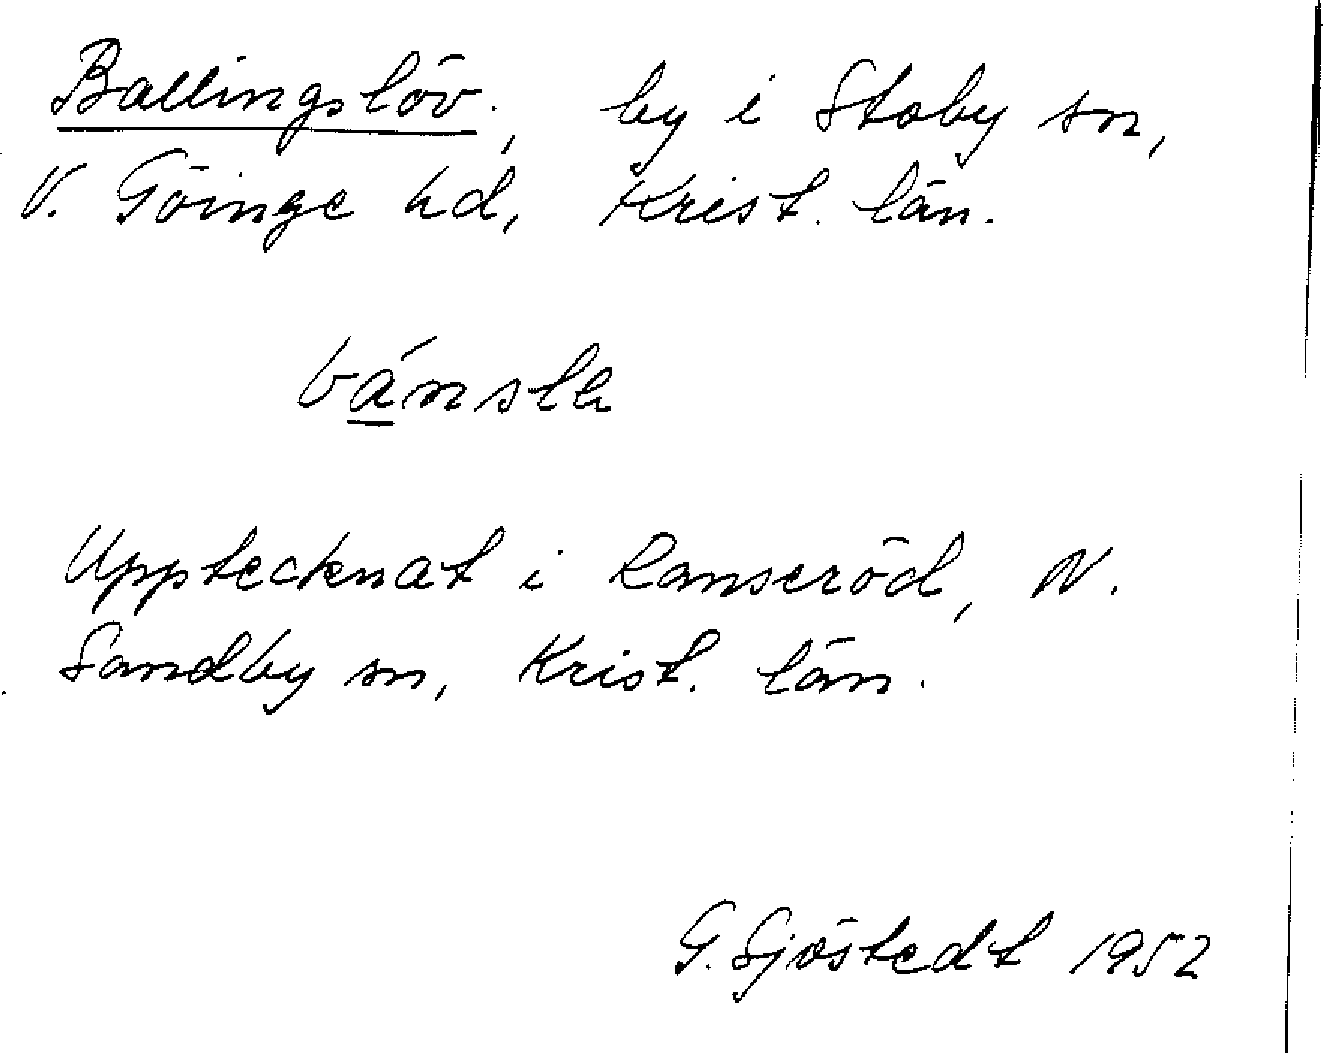 Ballingslöv, by i Stoby sn,
V. Göinge hd, Krist. län.
Upptecknat i Ranseröd, N.
Sandby sn, Krist. län.
G. Sjöstedt 1952